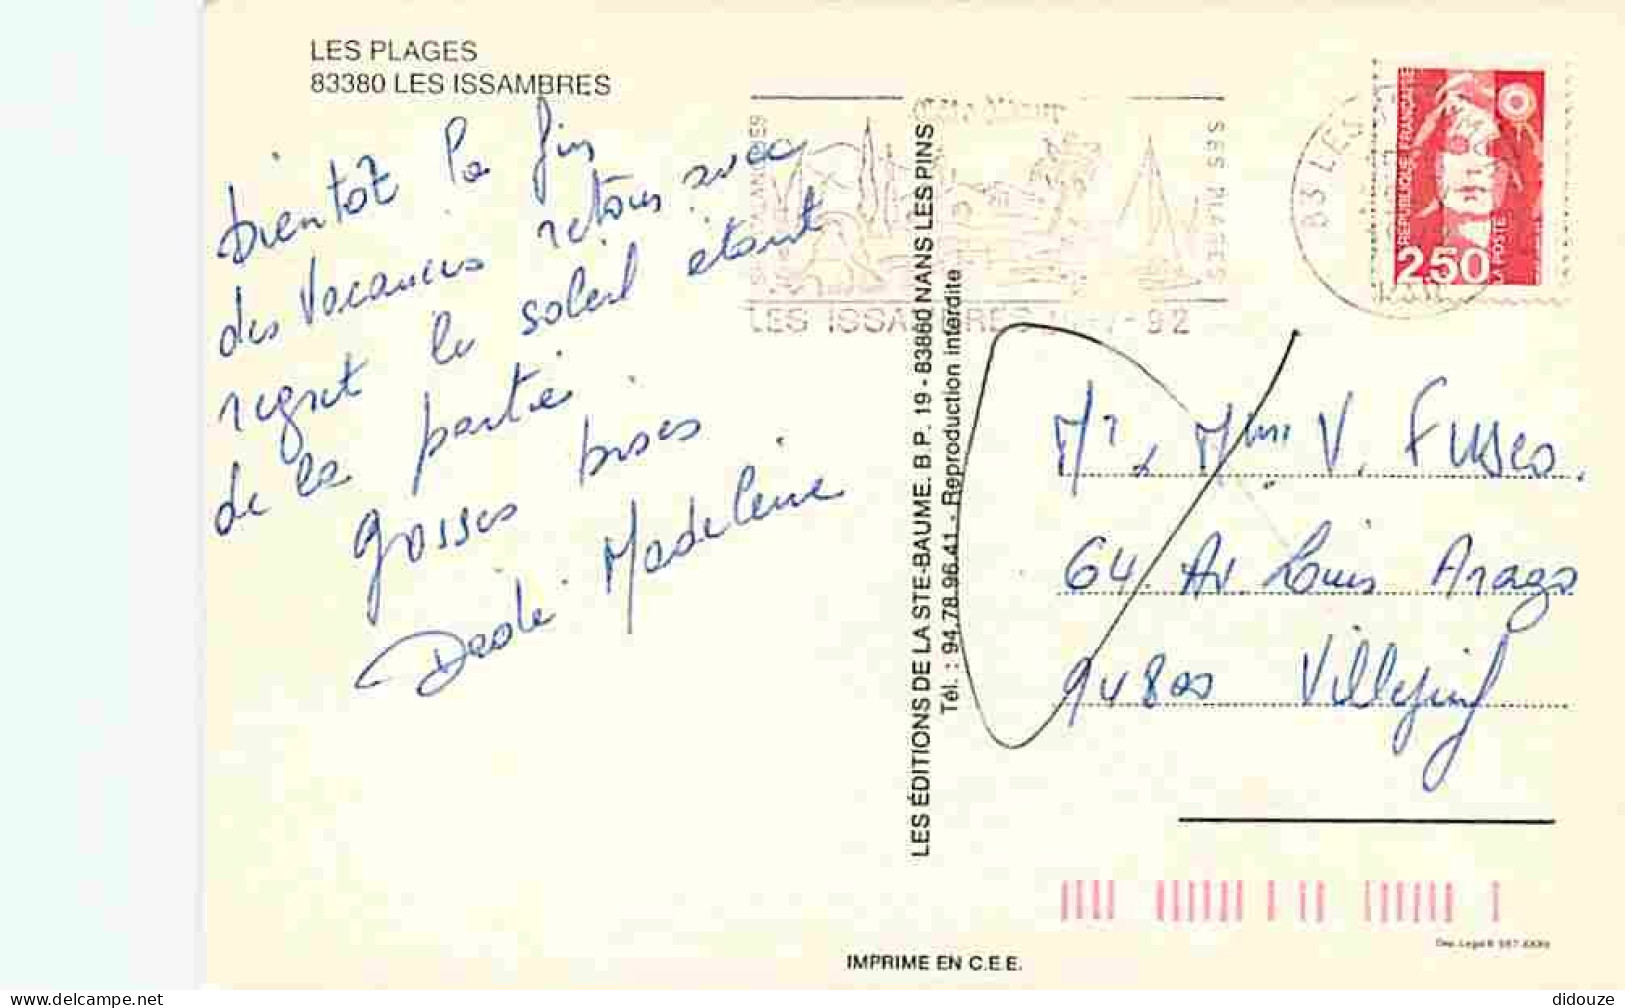 LES PLAGES
83380 LES ISSAMBRES
bientot la fin
des vacances retour avec
regret le soleil étant
de la partie
grosses bises
Dédé Madeleine
SES PLAGES
LES ISSAMBRES -92
83 LES
VAR
REPUBLIQUE FRANÇAISE
2,50
LA POSTE
LES ÉDITIONS DE LA STE-BAUME. B.P. 19 - 83860 NANS LES PINS
Tél. : 94.78.96.41 - Reproduction interdite
Mr & Mme V. Fusco.
64. Av. Louis Arago
94800 Villejuif
IMPRIME EN C.E.E.
delcampe.net
didouze